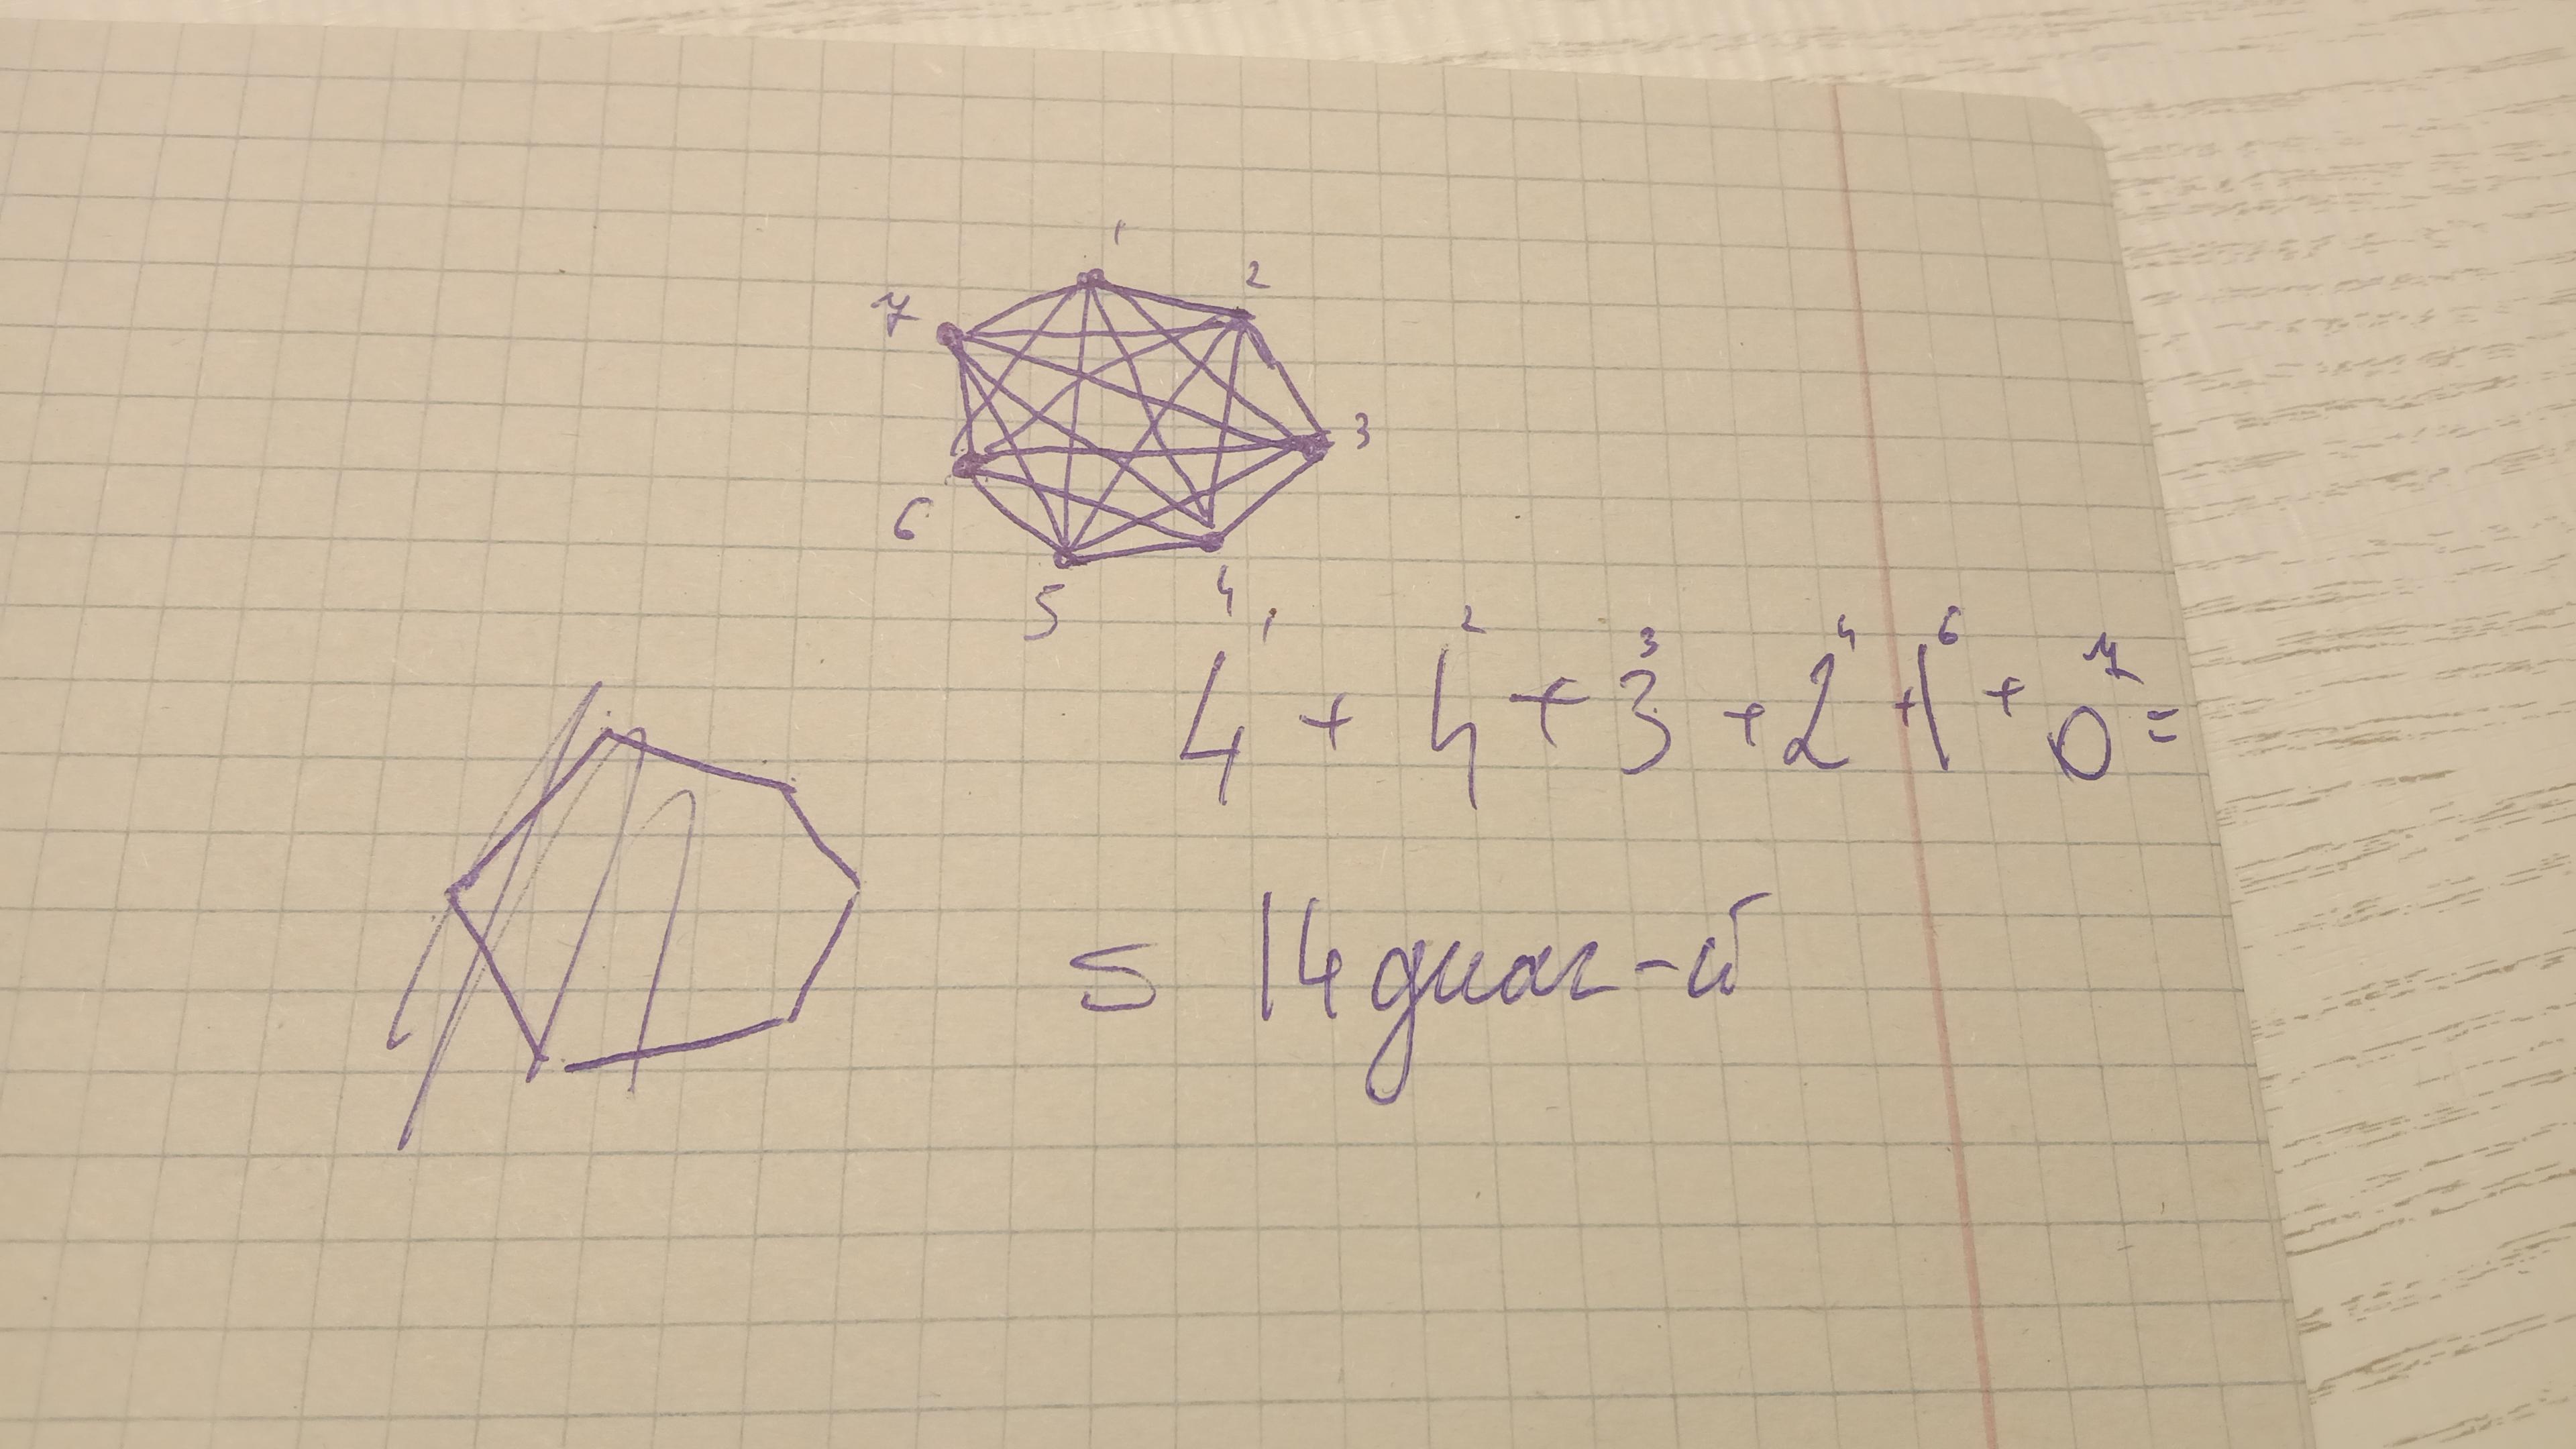 1
7 2
3
6
5 4
1 2 3 4 6 7
4 + 4 + 3 + 2 + 1 + 0 =
= 14 диаг-й